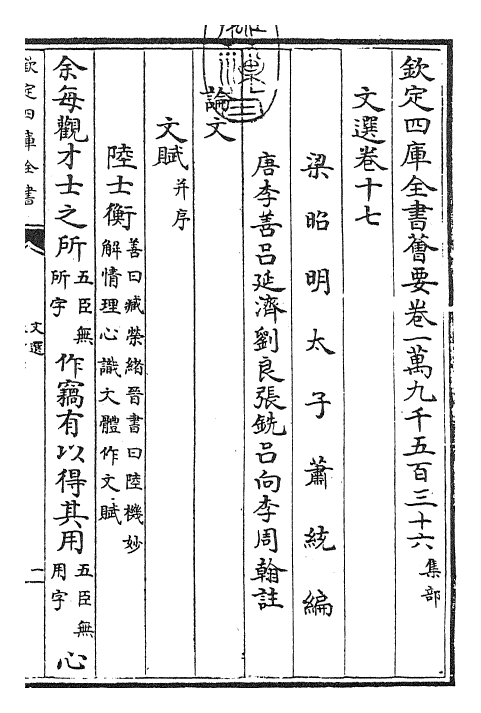 欽定四庫全書薈要卷一萬九千五百三十六 集部
文選卷十七
梁昭明太子蕭統編
唐李善呂延濟劉良張銑呂向李周翰註
論文
文賦 并序
陸士衡 善曰臧榮緒晉書曰陸機妙解情理心識文體作文賦
余每觀才士之所 五臣無所字 作竊有以得其用 五臣無用字 心
欽定四庫全書
文選